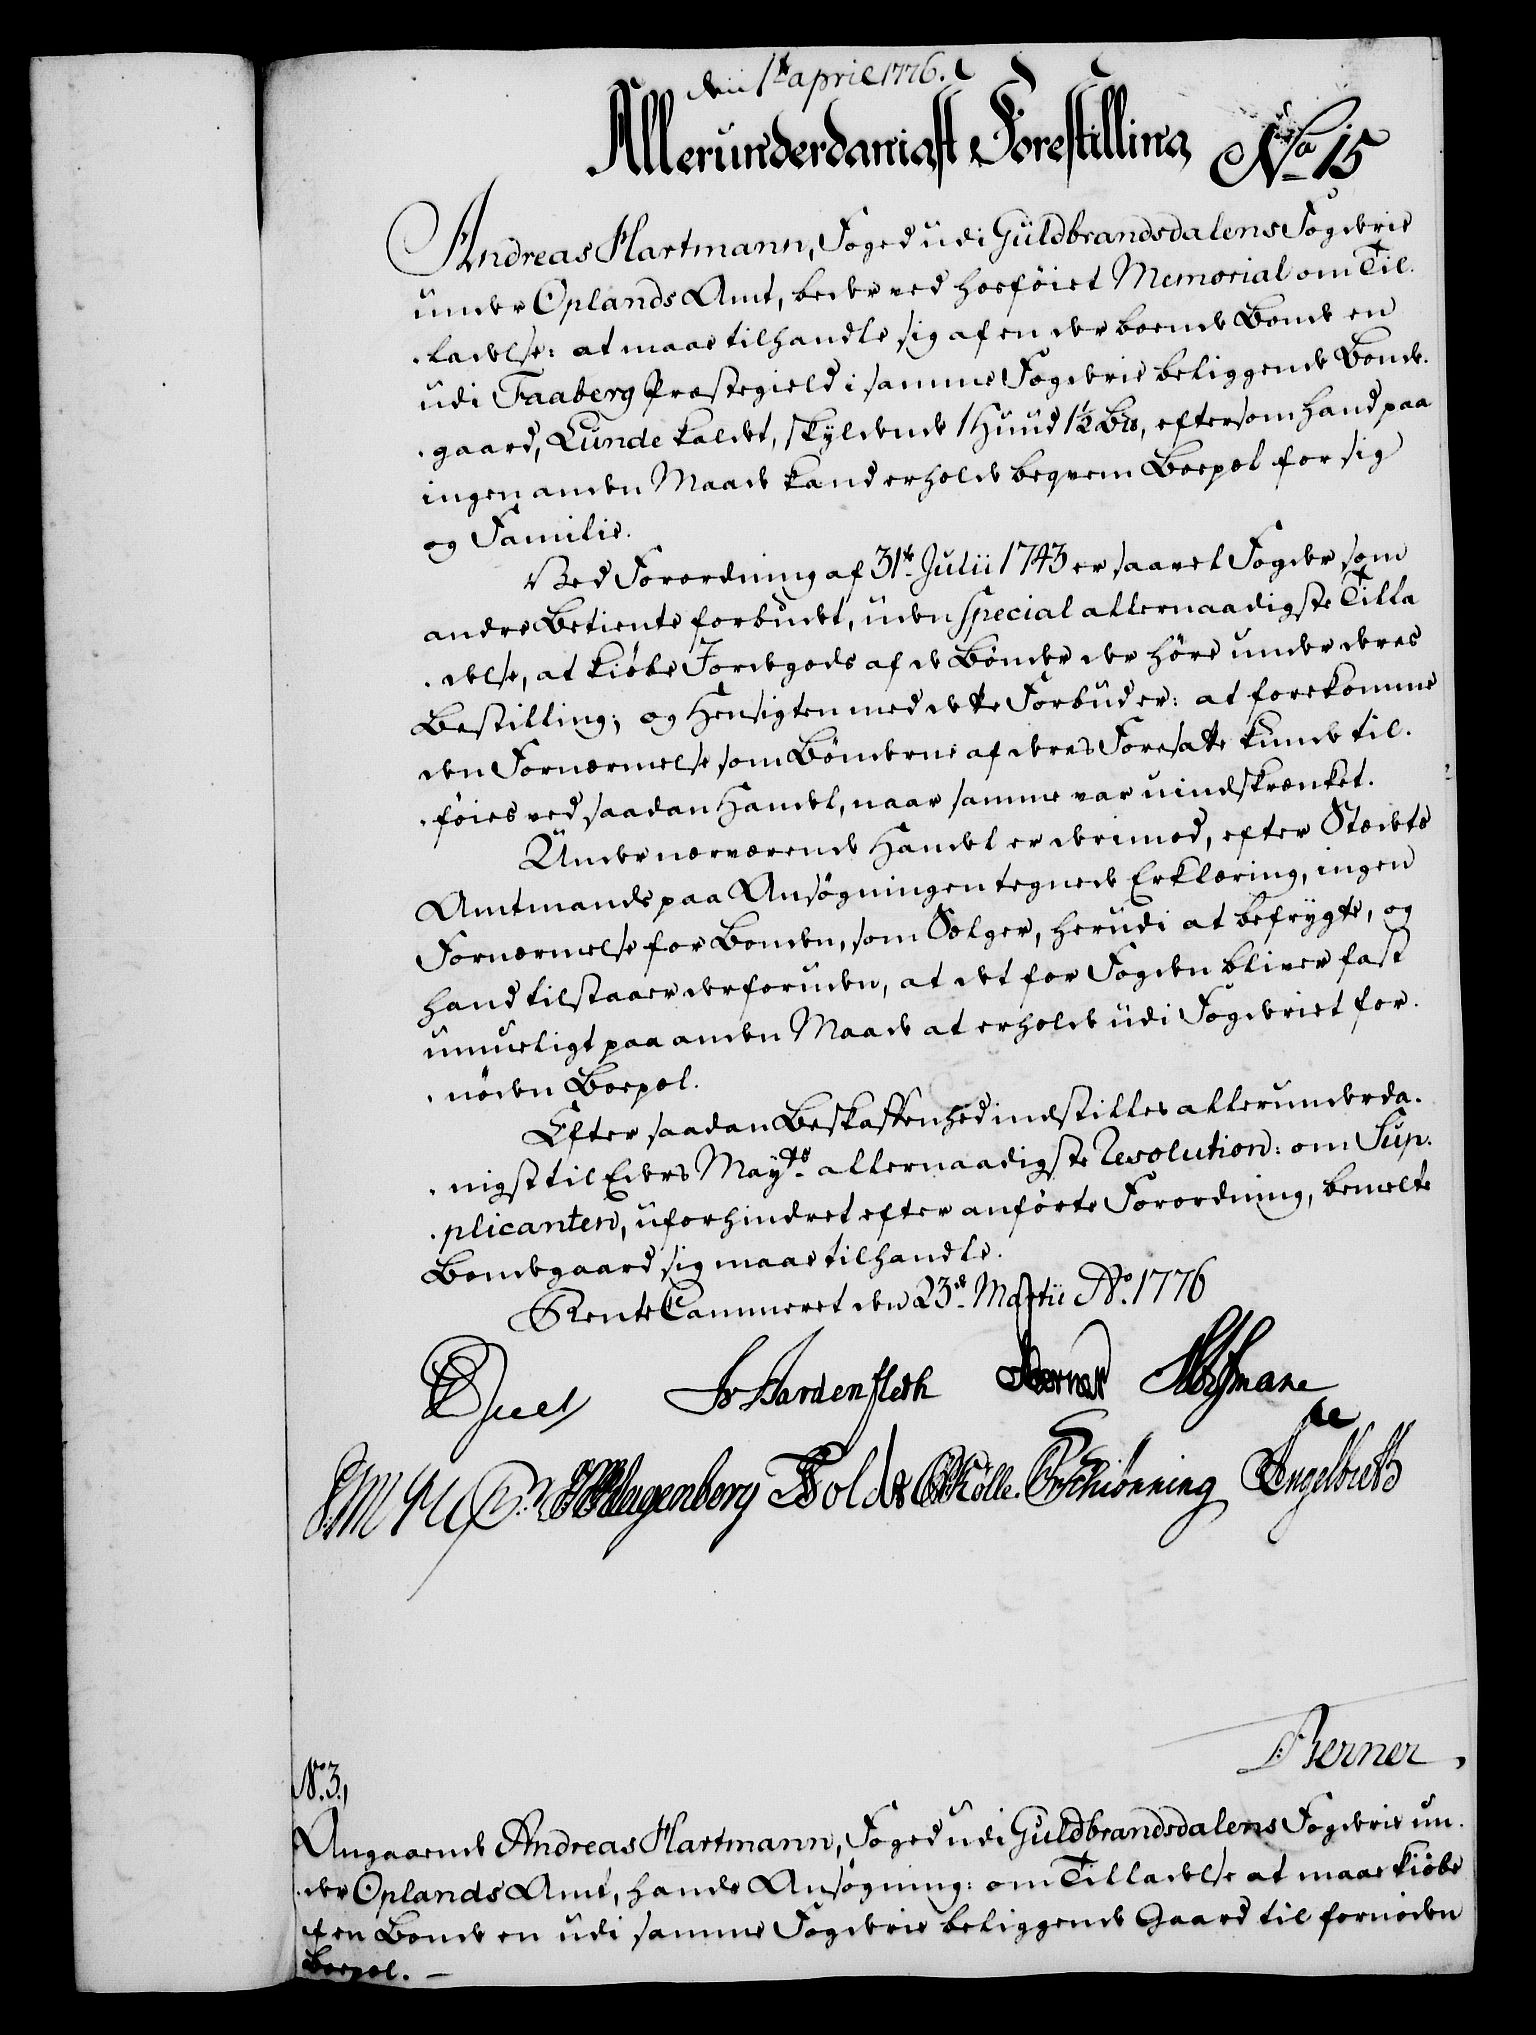 den 1te april 1776.
Allerunderdanigst Forestilling No 15
Andreas Hartmann, Foged udi Guldbrandsdalens Fogderie
under Oplands Amt, beder ved hosføiet Memorial om Til-
-ladelse: at maae tilhandle sig af en der boende Bonde en
udi Faaberg Præstegield i samme Fogderie beliggende Bonde-
-gaard, Lunde kaldet, skyldende 1 Huud 1½ , eftersom hand paa
ingen anden Maade kand erholde beqvem Boepæl for sig
og Familie.
Ved Forordning af 31te Julii 1743 er saavel Fogder som
andre Betiente forbudet, uden Special allernaadigste Tilla
-delse, at kiøbe Jordegods af de Bønder der høre under deres
Bestilling; og Hensigten med dette Forbud er: at forekomme
den Fornærmelse som Bønderne af deres Foresatte kunde til-
-føies ved saadan Handel, naar samme var uindskrænket.
Under nærværende Handel er derimod, efter Stædets
Amtmands paa Ansøgningen tegnede Erklæring, ingen
Fornærmelse for Bonden, som Sælger, herudi at befrygte, og
hand tilstaaer derforuden, at det for Fogden bliver fast
umueligt paa anden Maade at erholde udi Fogderiet for-
-nøden Boepæl.
Efter saadan Beskaffenhed indstilles allerunderda-
-nigst til Eders Mayts allernaadigste Resolution: om Sup-
-plicanten, uforhindret efter anførte Forordning, bemelte
Bondegaard sig maae tilhandle.
RenteCammeret den 23de Martii Ao. 1776
Juel JvHardenfleth Berner
Klagenberg Fold Kølle. Schiønning Engelbreth
Berner,
No. 3.,
Angaaende Andreas Hartmann, Foged udi Guldbrandsdalens Fogderie un-
-der Oplands Amt, hands Ansøgning: om Tilladelse at maae kiøbe
af en Bonde en udi samme Fogderie beliggende Gaard til fornøden
Boepæl. –